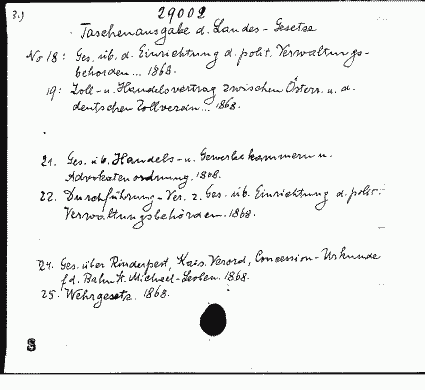 3.)
29002
Taschenausgabe d. Landes-Gesetze
No 18: Ges. üb. d. Einrichtung d. polit. Verwaltungs-
behörden... 1868.
19: Zoll- u. Handelsvertrag zwischen Österr. u. d.
deutschen Zollverein... 1868.
21. Ges. üb. Handels- u. Gewerbekammern u.
Advokatenordnung. 1868.
22. Durchführung-Ver. z. Ges. üb. Einrichtung d. polit.
Verwaltungsbehörden. 1868.
24. Ges. über Rinderpest, Kais. Verord, Concession-Urkunde
f. d. Bahn St. Michael-Leoben. 1868.
25. Wehrgesetz. 1868.